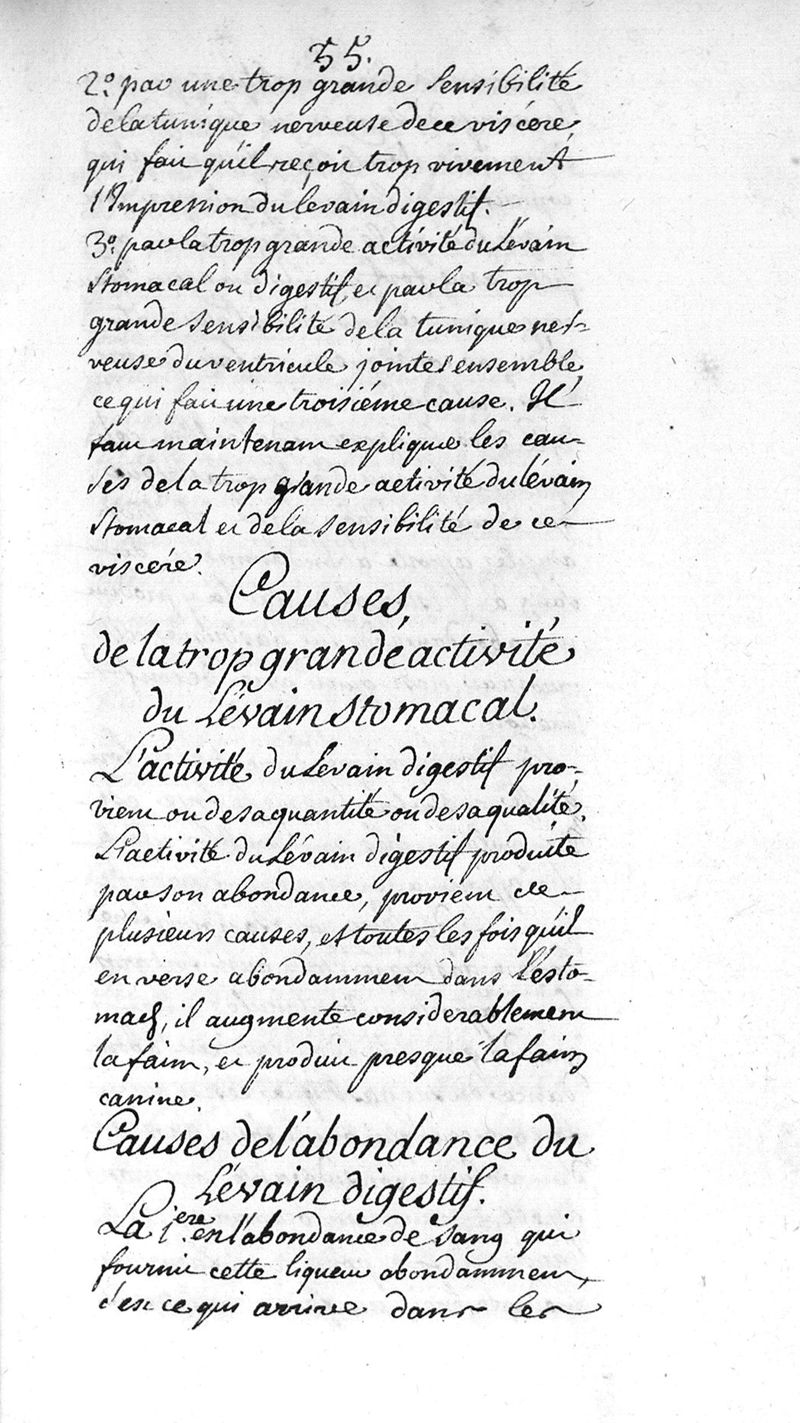 55.
2.° par une trop grande sensibilité
de la tunique nerveuse de ce viscere,
qui fait qu'il reçoit trop vivement
l'Impression du levain digestif.
3.° par la trop grande activité du Lévain
stomacal ou digestif, et par la trop
grande sensibilité de la tunique ner-
veuse du ventricule jointes ensemble,
ce qui fait une troisiéme cause. Il
faut maintenant expliquer les cau-
ses de la trop grande activité du lévain
stomacal et de la sensibilité de ce
viscére.
Causes,
de la trop grande activité
du Lévain stomacal.
L'activité du Levain digestif pro-
vient ou de sa quantité ou de sa qualité.
L'activité du Lévain digéstif produite
par son abondance, provient de
plusieurs causes, et toutes les fois qu'il
en verse abondamment dans l'ésto-
mach, il augmente considerablement
la faim, et produit presque la faim
canine.
Causes de l'abondance du
Lévain digestif.
La 1.ere est l'abondance de sang qui
fournit cette liqueur abondamment,
c'est ce qui arrive dans les